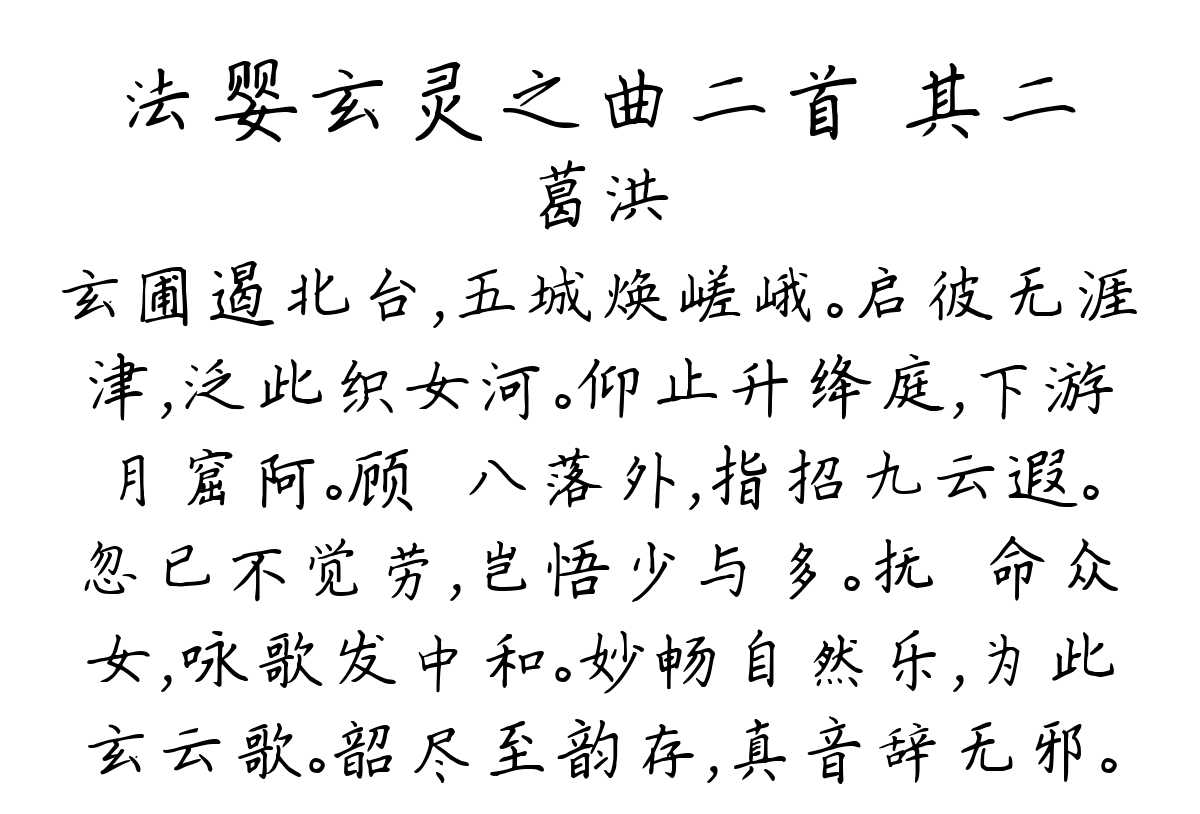 法婴玄灵之曲二首 其二
葛洪
玄圃遏北台,五城焕嵯峨。启彼无涯
津,泛此织女河。仰止升绛庭,下游
月窟阿。顾 八落外,指招九云遐。
忽已不觉劳,岂悟少与多。抚 命众
女,咏歌发中和。妙畅自然乐,为此
玄云歌。韶尽至韵存,真音辞无邪。